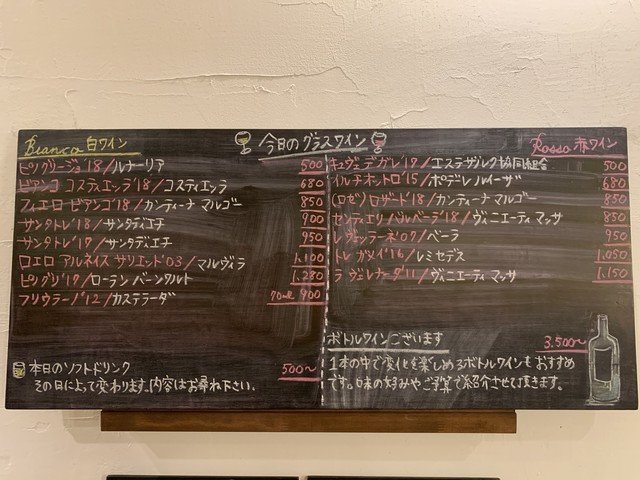 今日のグラスワイン
Bianco 白ワイン
ピノグリージョ'18/ルナーリア 500
ビアンコ コスティエッラ'18/コスティエッラ 680
フィエロ ビアンコ'18/カンティーナ マルゴー 850
サンタトレ'18/サンタディエチ 900
サンタトレ'17/サンタディエチ 950
ロエロ アルネイス サリエット'03/マルヴィラ 1,100
ピノグリ'17/ローラン バーンワルト 1,280
フリウラーノ'12/カステラーダ 70ml 900
本日のソフトドリンク 500〜
その日によって変わります。内容はお尋ね下さい。
Rosso 赤ワイン
キュヴェデガレ'17/エステザルグ協同組合 500
イルチオットロ'15/ポデレルイーザ 680
(ロゼ)ロザート'18/カンティーナ マルゴー 850
センティエリ/バルベーラ'18/ヴィニエーティ マッサ 850
レヴェッラーネ'07/ベーラ 950
トレ ガメイ'16/レミセデス 1,050
ラ ヴェレナーダ'11/ヴィニエーティ マッサ 1,150
ボトルワインございます 3,500〜
1本の中で変化を楽しめるボトルワインもおすすめ
です。味の好みやご予算で紹介させて頂きます。